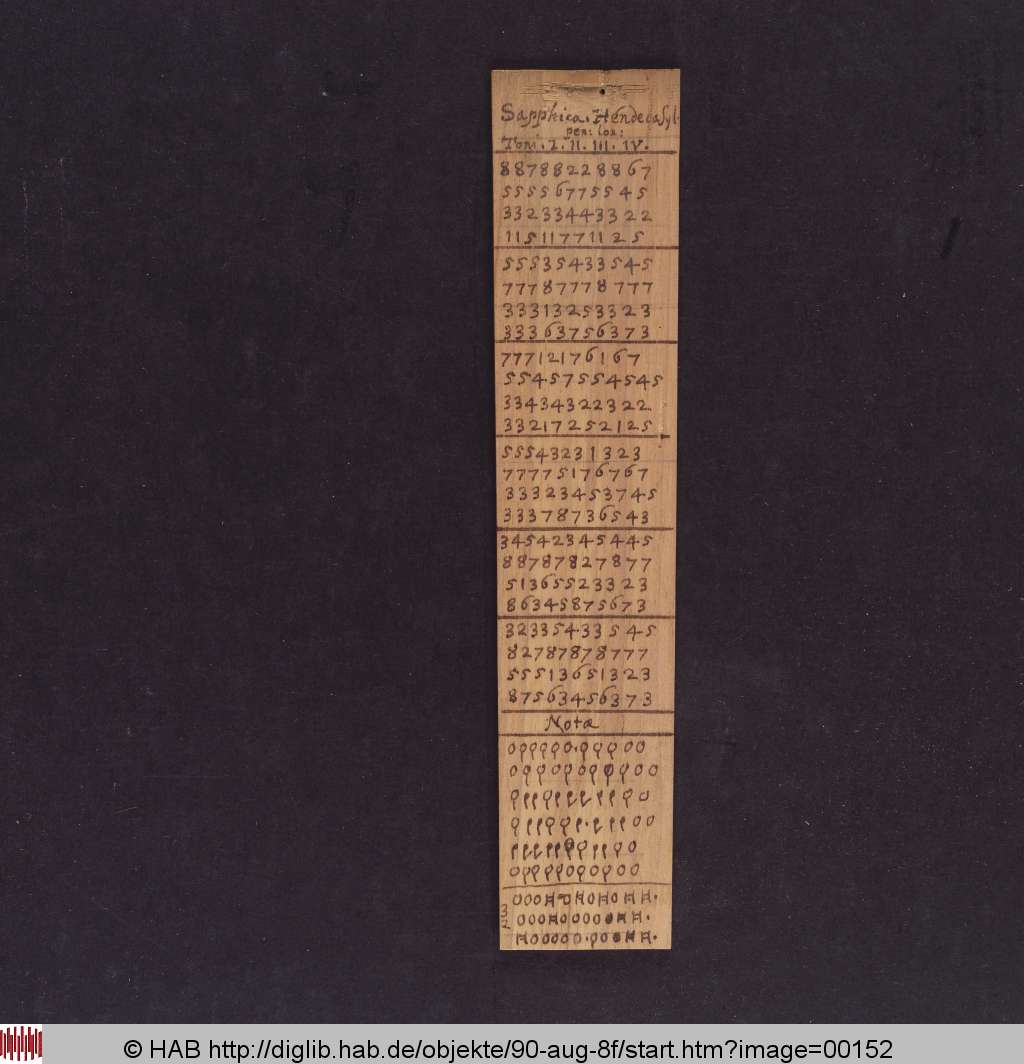 Sapphica. Hendecasyl.
pen: lon:
Toni. I. II. III. IV.
88788228867
55556775545
33233443322
11511771125
55535433545
77787778777
33313253323
33363756373
77712176167
554575545 45
33434322322
33217252125
55543231323
77775176767
33323453745
33378736543
34542345445
88787827877
51365523323
86345875673
32335433545
82787878777
55513651323
87563456373
Notæ
3
2
© HAB http://diglib.hab.de/objekte/90-aug-8f/start.htm?image=00152